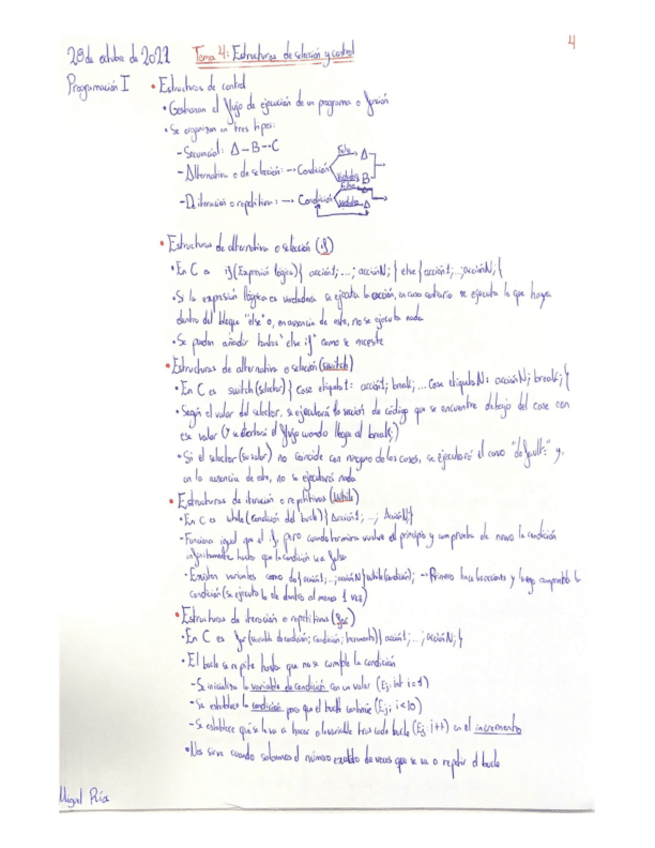 28 de octubre de 2022 Tema 4: Estructuras de selección y control 4
Programación I • Estructuras de control
• Gestionan el flujo de ejecución de un programa o función
• Se organizan en tres tipos:
- Secuencial: A - B - C
- Alternativa o de selección: → Condición Falso A
Verdadero B
- De iteración o repetitiva: → Condición Falso
Verdadero A
• Estructuras de alternativa o selección (if)
• En C es if(Expresión lógica){ acción1; ...; acciónN; } else {acción1; ...; acciónN; }
• Si la expresión lógica es verdadera se ejecuta la acción, en caso contrario se ejecuta lo que haya
dentro del bloque "else" o, en ausencia de este, no se ejecuta nada
• Se pueden añadir tantos "else if" como se necesite
• Estructuras de alternativa o selección (switch)
• En C es switch(selector){ case etiqueta1: acción1; break; ... case etiquetaN: acciónN; break; }
• Según el valor del selector, se ejecutará la sección de código que se encuentre debajo del case con
ese valor (Y se detendrá el flujo cuando llega al break;)
• Si el selector (su valor) no coincide con ninguno de los casos, se ejecutará el caso "default:" y,
en la ausencia de este, no se ejecutará nada
• Estructuras de iteración o repetitivas (While)
• En C es while(condición del bucle){ Acción1; ...; AcciónN}
- Funciona igual que el if, pero cuando termina vuelve al principio y comprueba de nuevo la condición
infinitamente hasta que la condición sea falsa
- Existen variantes como do{acción1; ...; acciónN}while(condición); → Primero hace las acciones y luego comprueba la
condición (se ejecuta lo de dentro al menos 1 vez)
• Estructuras de iteración o repetitivas (for)
• En C es for(variable de condición; condición; incremento){ acción1; ...; acciónN; }
• El bucle se repite hasta que no se cumple la condición
- Se inicializa la variable de condición con un valor (Ej: int i=1)
- Se establece la condición para que el bucle continúe (Ej: i<10)
- Se establece qué se le va a hacer a la variable tras cada bucle (Ej: i++) en el incremento
• Nos sirve cuando sabemos el número exacto de veces que se va a repetir el bucle
Miguel